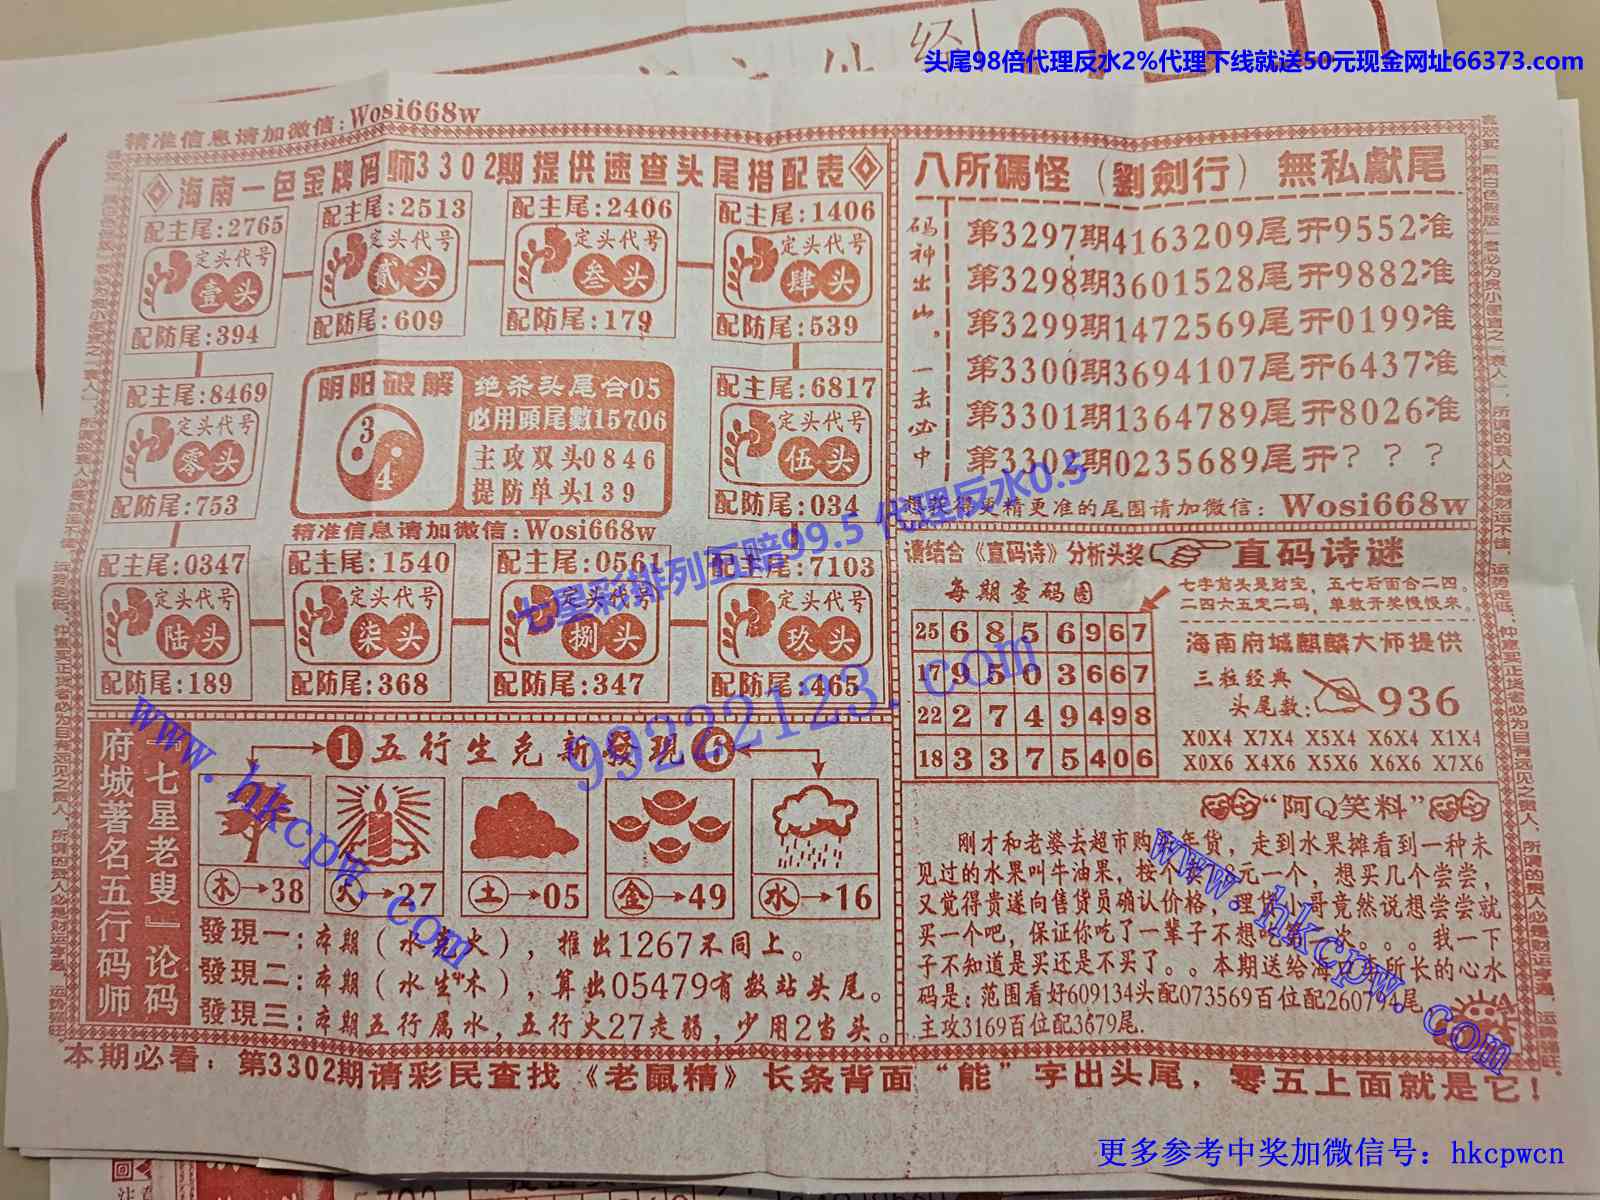 头尾98倍代理反水2%代理下线就送50元现金网址66373.com
精准信息请加微信:Wosi668w
海南一色金牌码师3302期提供速查头尾搭配表
配主尾:2765
定头代号
壹头
配防尾:394
配主尾:2513
定头代号
贰头
配防尾:609
配主尾:2406
定头代号
叁头
配防尾:179
配主尾:1406
定头代号
肆头
配防尾:539
配主尾:8469
定头代号
零头
配防尾:753
阴阳破解
3
4
绝杀头尾合05
必用頭尾數15706
主攻双头0846
提防单头139
精准信息请加微信:Wosi668w
配主尾:6817
定头代号
伍头
配防尾:034
配主尾:0347
定头代号
陆头
配防尾:189
配主尾:1540
定头代号
柒头
配防尾:368
配主尾:0561
定头代号
捌头
配防尾:347
配主尾:7103
定头代号
玖头
配防尾:465
八所碼怪(劉劍行)無私獻尾
码神出山,一击必中
第3297期4163209尾开9552准
第3298期3601528尾开9882准
第3299期1472569尾开0199准
第3300期3694107尾开6437准
第3301期1364789尾开8026准
第3302期0235689尾开???
想获得更精更准的尾图请加微信:Wosi668w
请结合《直码诗》分析头奖
直码诗谜
每期查码图
25 6 8 5 6 9 6 7
17 9 5 0 3 6 6 7
22 2 7 4 9 4 9 8
18 3 3 7 5 4 0 6
七字前头是财宝,五七后面合二四。
二四六五定二码,单数开奖慢慢来。
海南府城麒麟大师提供
三粒经典
头尾数:936
X0X4 X7X4 X5X4 X6X4 X1X4
X0X6 X4X6 X5X6 X6X6 X7X6
『七星老叟』论码
府城著名五行码师
1五行生克新發現6
木→38
火→27
土→05
金→49
水→16
發現一:本期(水克火),推出1267不同上。
發現二:本期(水生木),算出05479有数站头尾。
發現三:本期五行属水,五行火27走弱,少用2当头。
“阿Q笑料”
刚才和老婆去超市购买年货,走到水果摊看到一种未
见过的水果叫牛油果,按个卖元一个,想买几个尝尝,
又觉得贵遂向售货员确认价格,理货小哥竟然说想尝尝就
买一个吧,保证你吃了一辈子不想吃第二次。。。我一下
子不知道是买还是不买了。。本期送给海口所长的心水
码是:范围看好609134头配073569百位配260794尾
主攻3169百位配3679尾.
本期必看:第3302期请彩民查找《老鼠精》长条背面“能”字出头尾,零五上面就是它!
七星彩排列五赔99.5 代理反水0.5
99222123.com
www.hkcpw.com
www.hkcpw.com
更多参考中奖加微信号:hkcpwcn